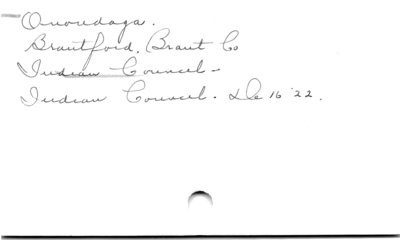 Onondaga.
Brantford, Brant Co
Indian Council -
Indian Council. De 16 '22.